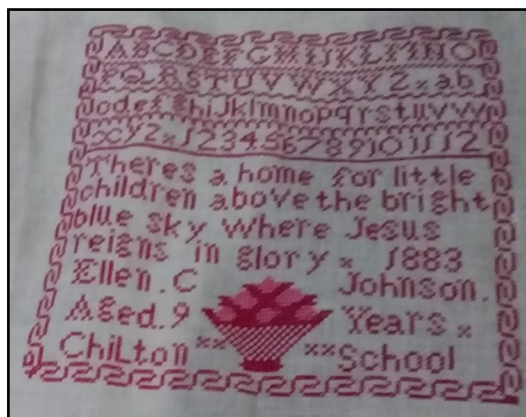 ABCDEFGHIJKLMNO
PQRSTUVWXYZ × ab
cdefghijklmnopqrstuvw
xyz × 123456789101112
Theres a home for little
children above the bright
blue sky where Jesus
reigns in glory × 1883
Ellen. C Johnson.
Aged. 9 Years ×
Chilton ×× ××School